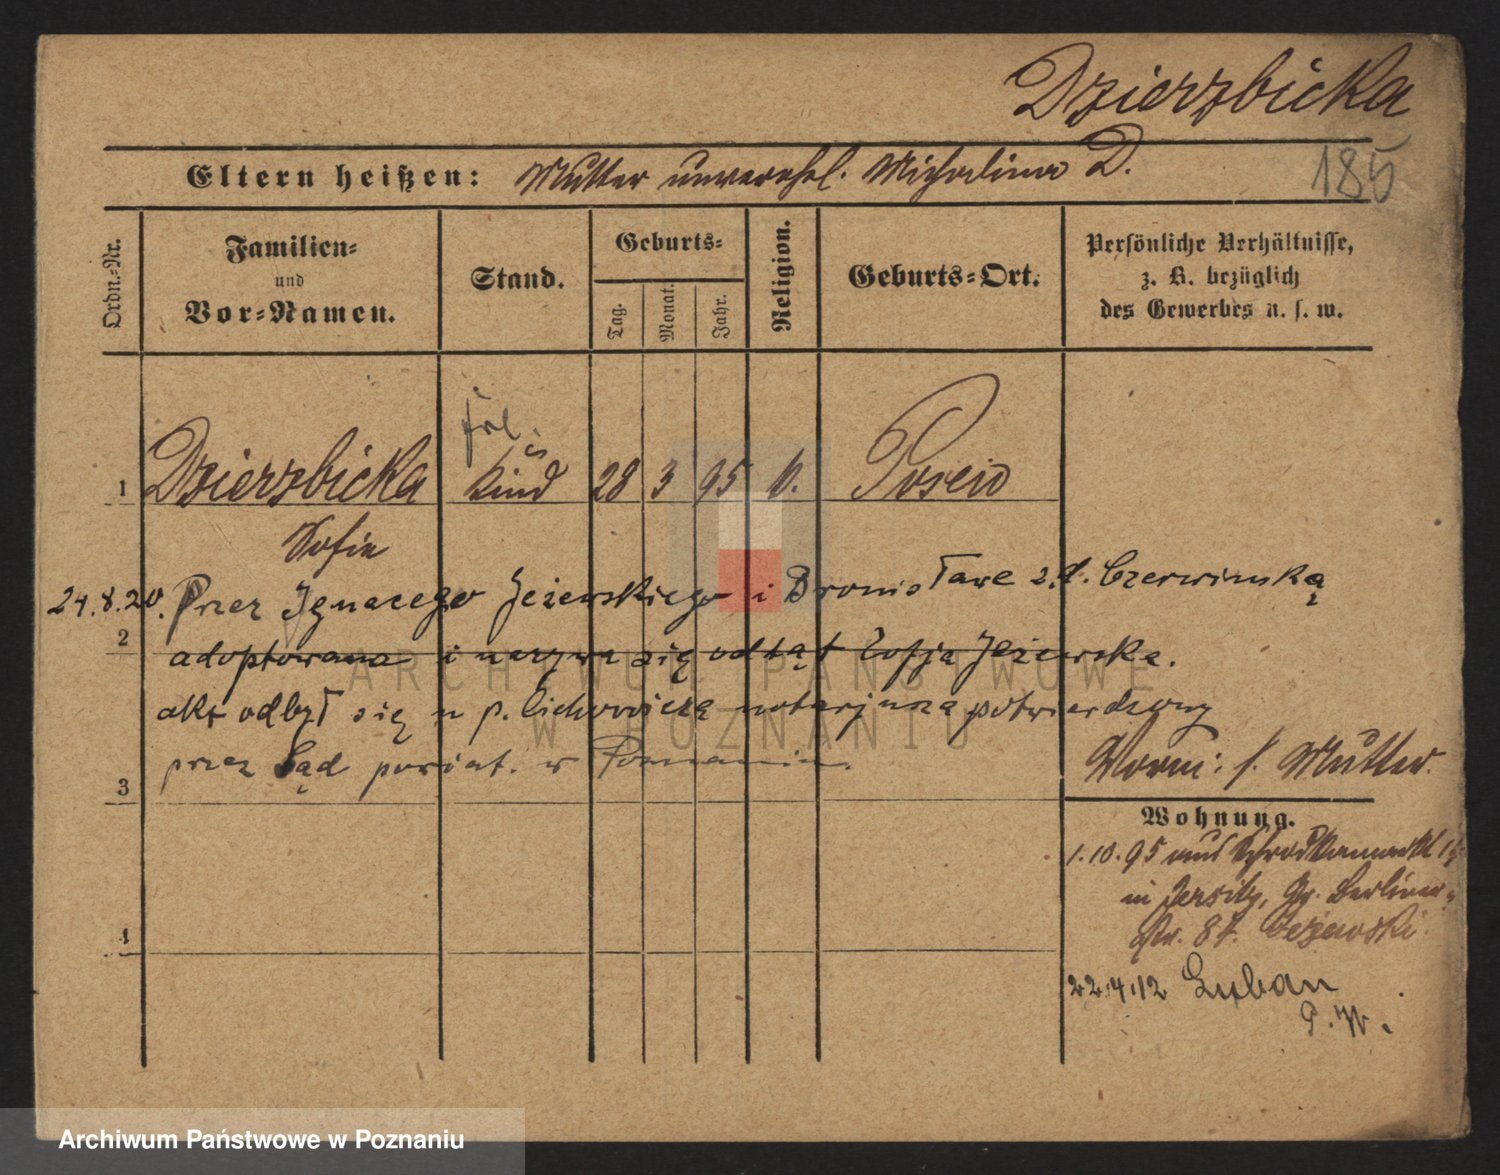 Dzierzbicka
185
Eltern heißen: Mutter unverehl. Michalina D.
Ordn.-Nr.
Familien-
und
Vor-Namen.
Stand.
Geburts-
Tag. Monat. Jahr.
Religion.
Geburts-Ort.
Persönliche Verhältnisse,
z. B. bezüglich
des Gewerbes u. s. w.
frl.
1 Dzierzbicka Kind 28 3 95 k. Posen
Sofie
24.8.20. Przez Ignacego Jeżewskiego i Bronisławę z d. Czerwińską
2
adoptowana i nazywa się odtąd Zofja Jeżewska.
akt odbył się u p. Cichowicza notarjusza potwierdzony
przez Sąd powiat. w Poznaniu.
3
Vorm: s. Mutter.
Wohnung.
1.10.95 aus Schrodkamarkt
in Jersitz, Gr. Berliner-
Str. 87. Jeżewski.
4
22.4.12 Luban
P.W.
ARCHIWUM PAŃSTWOWE
W POZNANIU
Archiwum Państwowe w Poznaniu